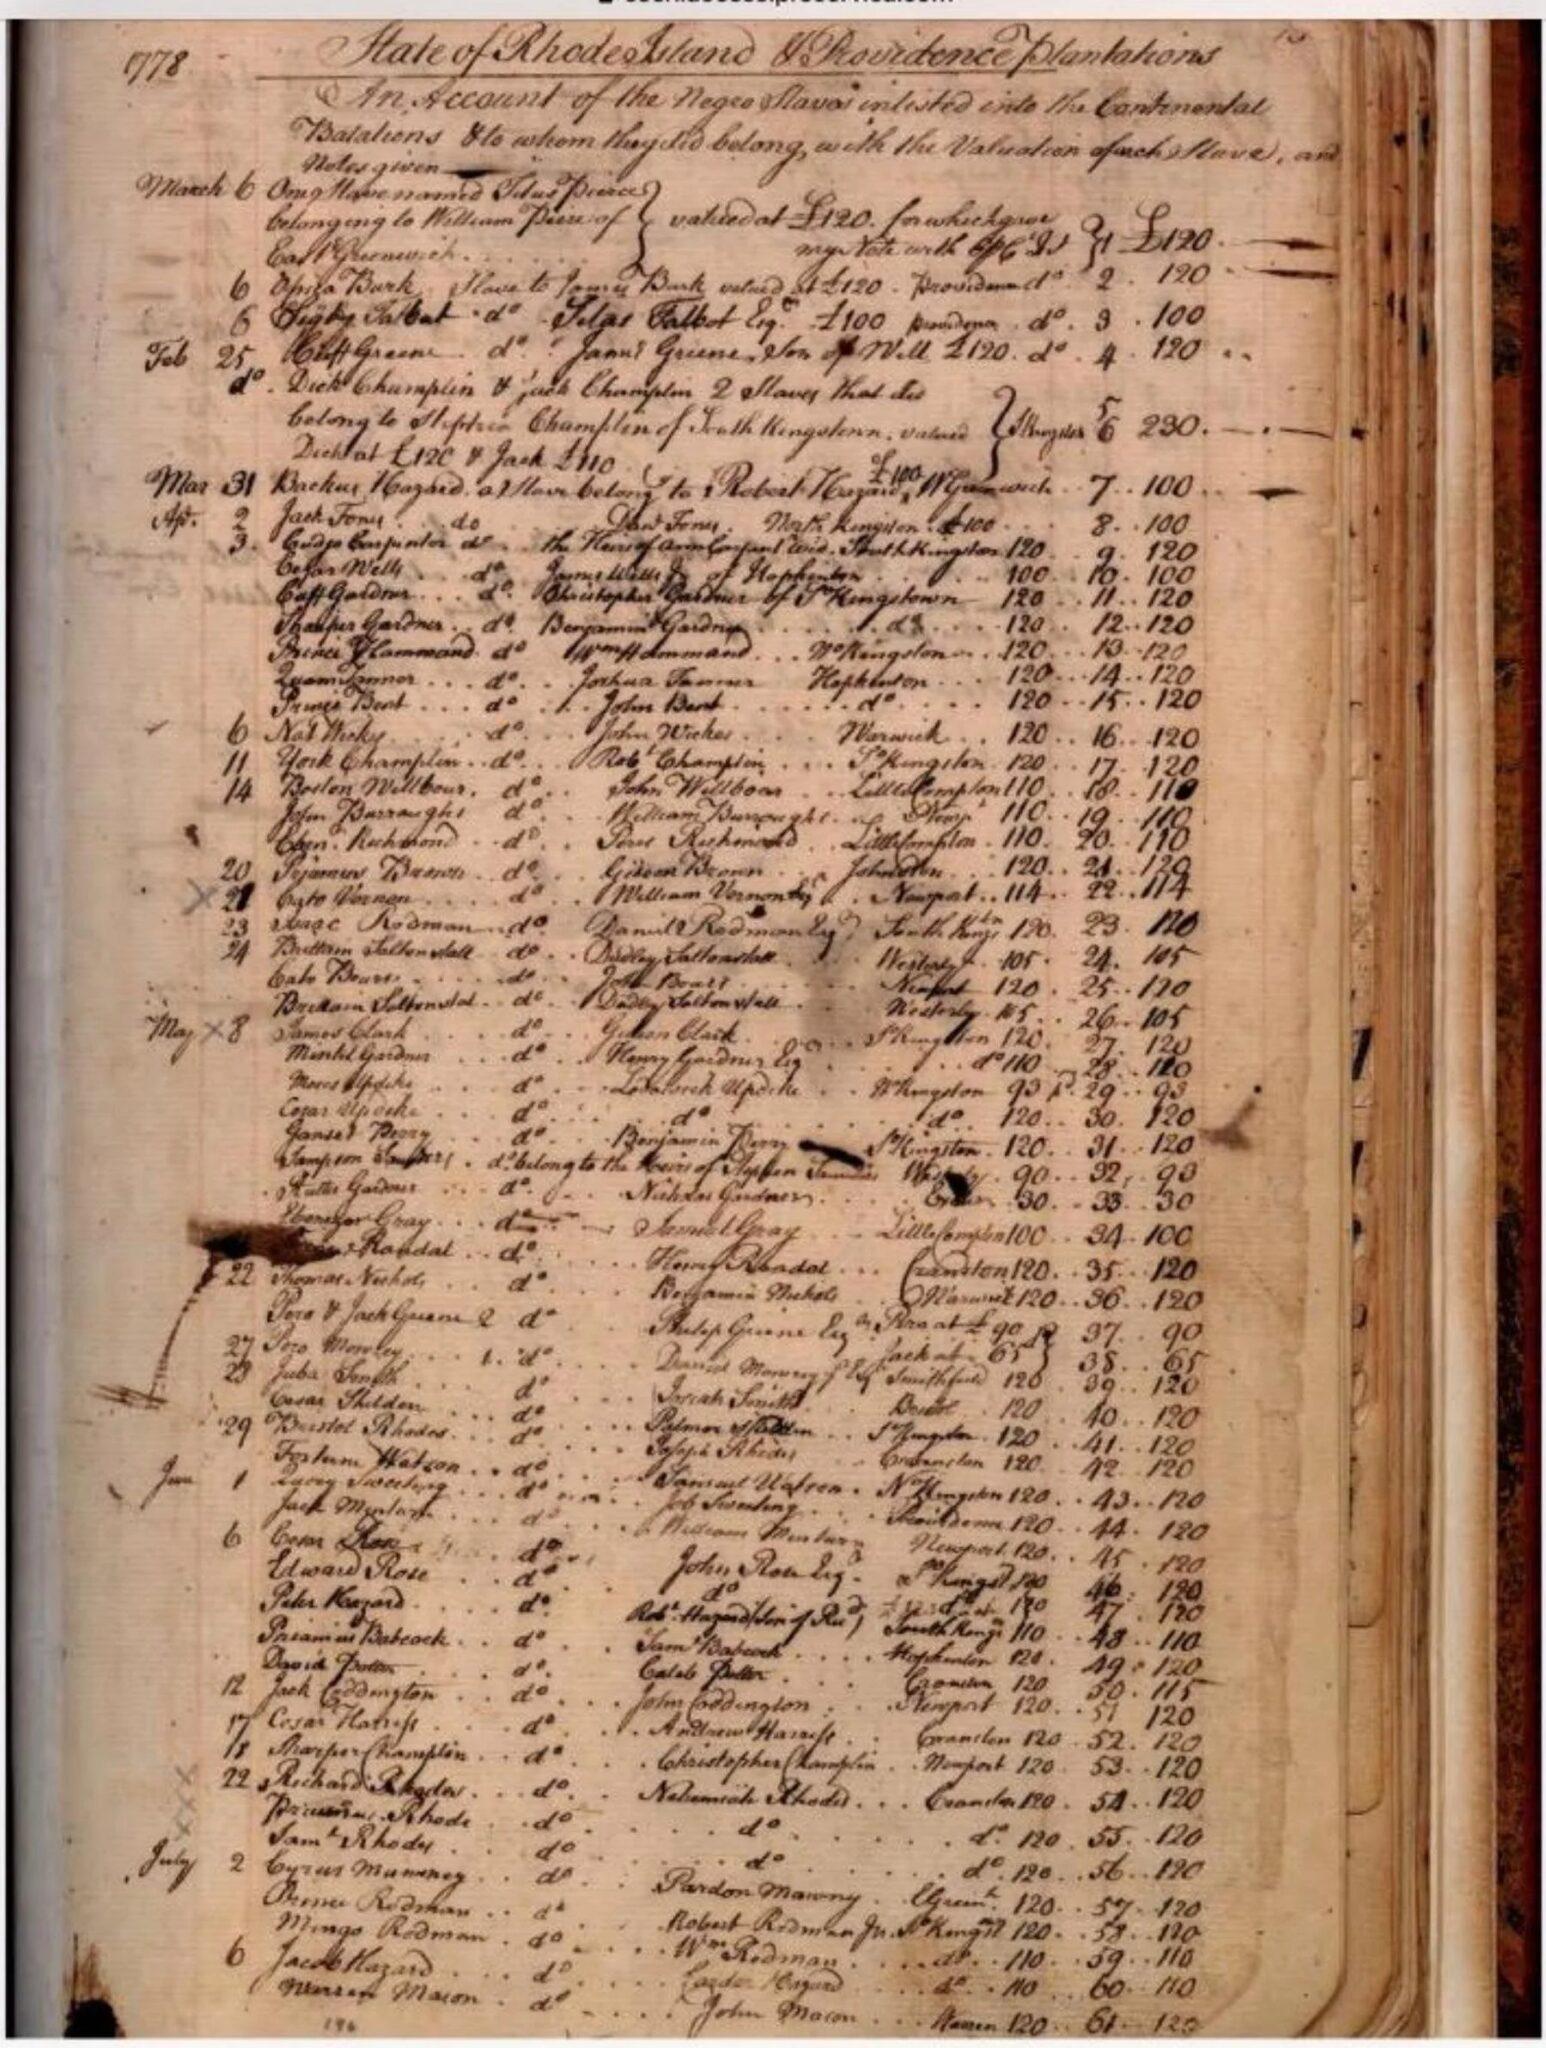 1778 State of Rhode Island & Providence Plantations
An Account of the Negro Slaves inlisted into the Continental
Batalions & to whom they did belong, with the Valuation of each Slave, and
Notes given
March 6 One Slave named Titus Pierce
belonging to William Pierce of valued at £120. for which gave
East Greenwich my Note with 1 £120
6 Burk Slave to James Burk valued at £120 Providence do 2 120
6 Digby Talbut do Silas Talbot Esq. £100 Providence do 3 100
Feb 25 Cuff Greene do James Greene, Son of Will £120 do 4 120
do Dick Champlin & Jack Champlin 2 Slaves that did
belong to Stephen Champlin of South Kingstown, valued S Kingston 5 6 230
Dick at £120 & Jack £110
Mar 31 Backus Hazard a Slave belong to Robert Hazard, £100 W Greenwich 7 100
Apr. 2 Jack Fones do Danl Fones North Kingston £100 8 100
3 Cudjo Carpenter do the Heirs of South Kingston 120 9 120
Cezar Wells do James Wells Jr of Hopkinton 100 10 100
Cuff Gardner do Christopher Gardner of So Kingstown 120 11 120
Sharper Gardner do Benjamin Gardner do 120 12 120
Prince Hammond do Wm Hammond No Kingston 120 13 120
Quam Tanner do Joshua Tanner Hopkinton 120 14 120
Prince Bent do John Bent do 120 15 120
6 Nat Wicks do John Wickes Warwick 120 16 120
11 York Champlin do Robt Champlin So Kingston 120 17 120
14 Boston Willbour do John Willbour Little Compton 110 18 110
John Burroughs do William Burroughs 110 19 110
Eben. Richmond do Perez Richmond Little Compton 110 20 110
20 Brown do Gideon Brown Johnston 120 21 120
21 Cato Vernon do William Vernon Esq Newport 114 22 114
23 Isaac Rodman do Daniel Rodman Esq South Kings tn 120 23 120
24 Brittain Saltonstall do Dudley Saltonstall Westerly 105 24 105
Cato Bours do John Bours Newport 120 25 120
Brittain Saltonstal do Dudley Saltonstall Westerly 105 26 105
May 8 James Clark do Gideon Clark S Kingston 120 27 120
Gardner do Henry Gardner Esq do 110 28 110
Moses Updike do Lodowick Updike N Kingston 93 29 93
Cezar Updike do do do 120 30 120
Perry do Benjamin Perry S Kingston 120 31 120
Sampson do belong to the Heirs of Stephen Westerly 90 32 90
Rutter Gardner do Nicholas Gardner Exeter 30 33 30
Ebenezer Gray do Samuel Gray Little Compton 100 34 100
Randal do Henry Randal Cranston 120 35 120
22 Thomas Nichols do Benjamin Nichols Warwick 120 36 120
Pero & Jack Greene 2 do Philip Greene Esq Pero at £90 37 90
Jack at 65 38 65
27 Pero Mowry do Daniel Mowry Smithfield 120 39 120
28 Juba Smith do Smith Bristol 120 40 120
Cesar Sheldon do Palmer Sheldon S Kingston 120 41 120
29 Bristol Rhodes do Joseph Rhodes Cranston 120 42 120
Fortune Watson do Samuel Watson N Kingston 120 43 120
June 1 Sweeting do Job Sweeting Providence 120 44 120
Jack Minturn do William Minturn Newport 120 45 120
6 Cesar Rose do John Rose Esq So Kingst 120 46 120
Edward Rose do do 120 47 120
Peter Hazard do Robt Hazard (Son of Richd) South Kings 110 48 110
Priamus Babcock do Saml Babcock Hopkinton 120 49 120
David Potter do Caleb Potter Cranston 120 50 115
12 Jack Coddington do John Coddington Newport 120 51 120
17 Cesar Harriss do Andrew Harriss Cranston 120 52 120
18 Sharper Champlin do Christopher Champlin Newport 120 53 120
22 Richard Rhodes do Nehemiah Rhodes Cranston 120 54 120
Rhode do do do 120 55 120
Saml Rhodes do do do 120 56 120
July 2 Cyrus do Pardon Mawny E Greenh 120 57 120
Prince Rodman do Robert Rodman Jn. So Kingst 120 58 120
Mingo Rodman do Wm Rodman do 110 59 110
6 Jacob Hazard do Carder Hazard do 110 60 110
Warren Mason do John Mason Warren 120 61 120